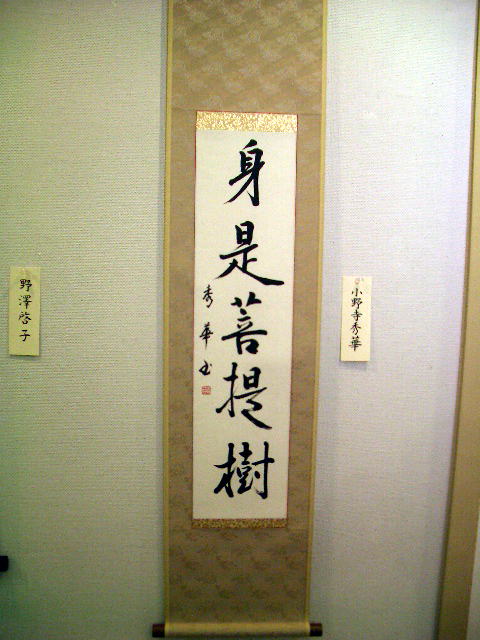 小野寺秀華
身是菩提樹
秀華書
野澤啓子